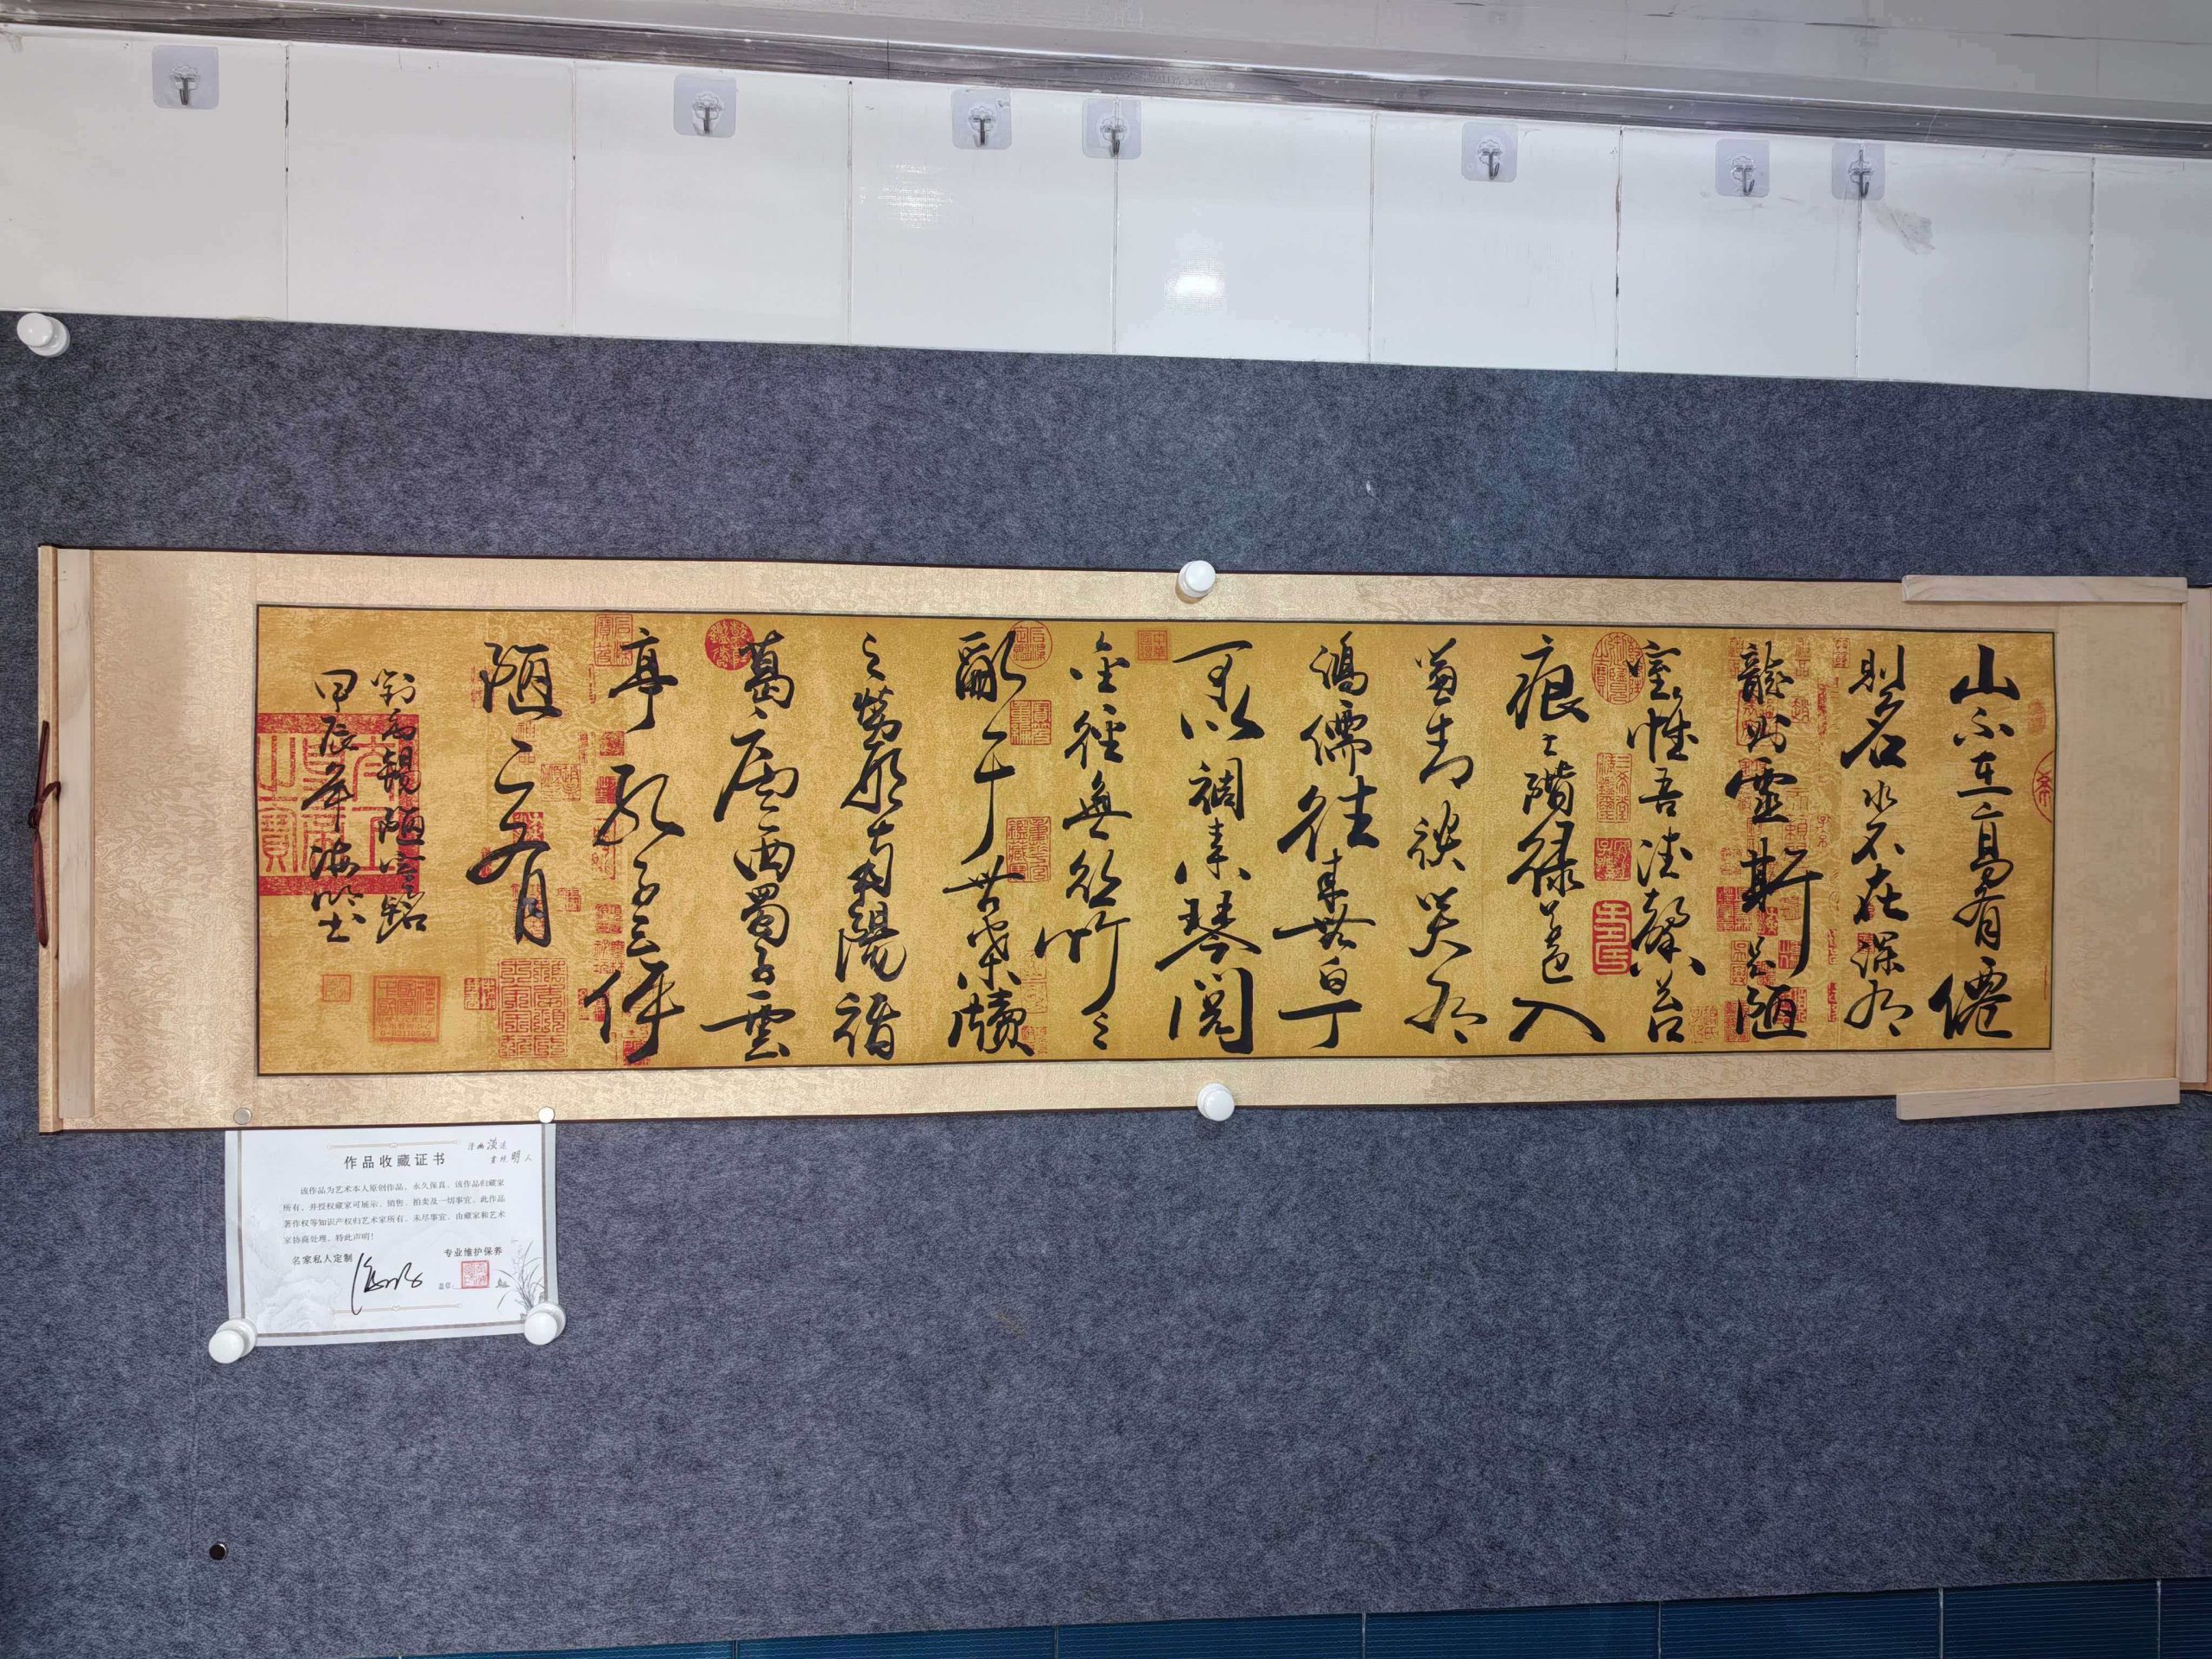 山不在高有僊
則名水不在深有
龍則靈斯是陋
室惟吾德馨苔
痕上階緑草色入
簾青談笑有
鴻儒往来無白丁
可以調素琴閱
金經無絲竹之
亂耳無案牘
之勞形南陽諸
葛廬西蜀子雲
亭孔子云何
陋之有
劉禹錫陋室銘
甲辰年海明书
作品收藏证书
该作品为艺术本人原创作品，永久保真，该作品归藏家
所有，并授权藏家可展示、销售、拍卖及一切事宜，此作品
著作权等知识产权归艺术家所有，未尽事宜，由藏家和艺术
家协商处理，特此声明！
名家私人定制
专业维护保养